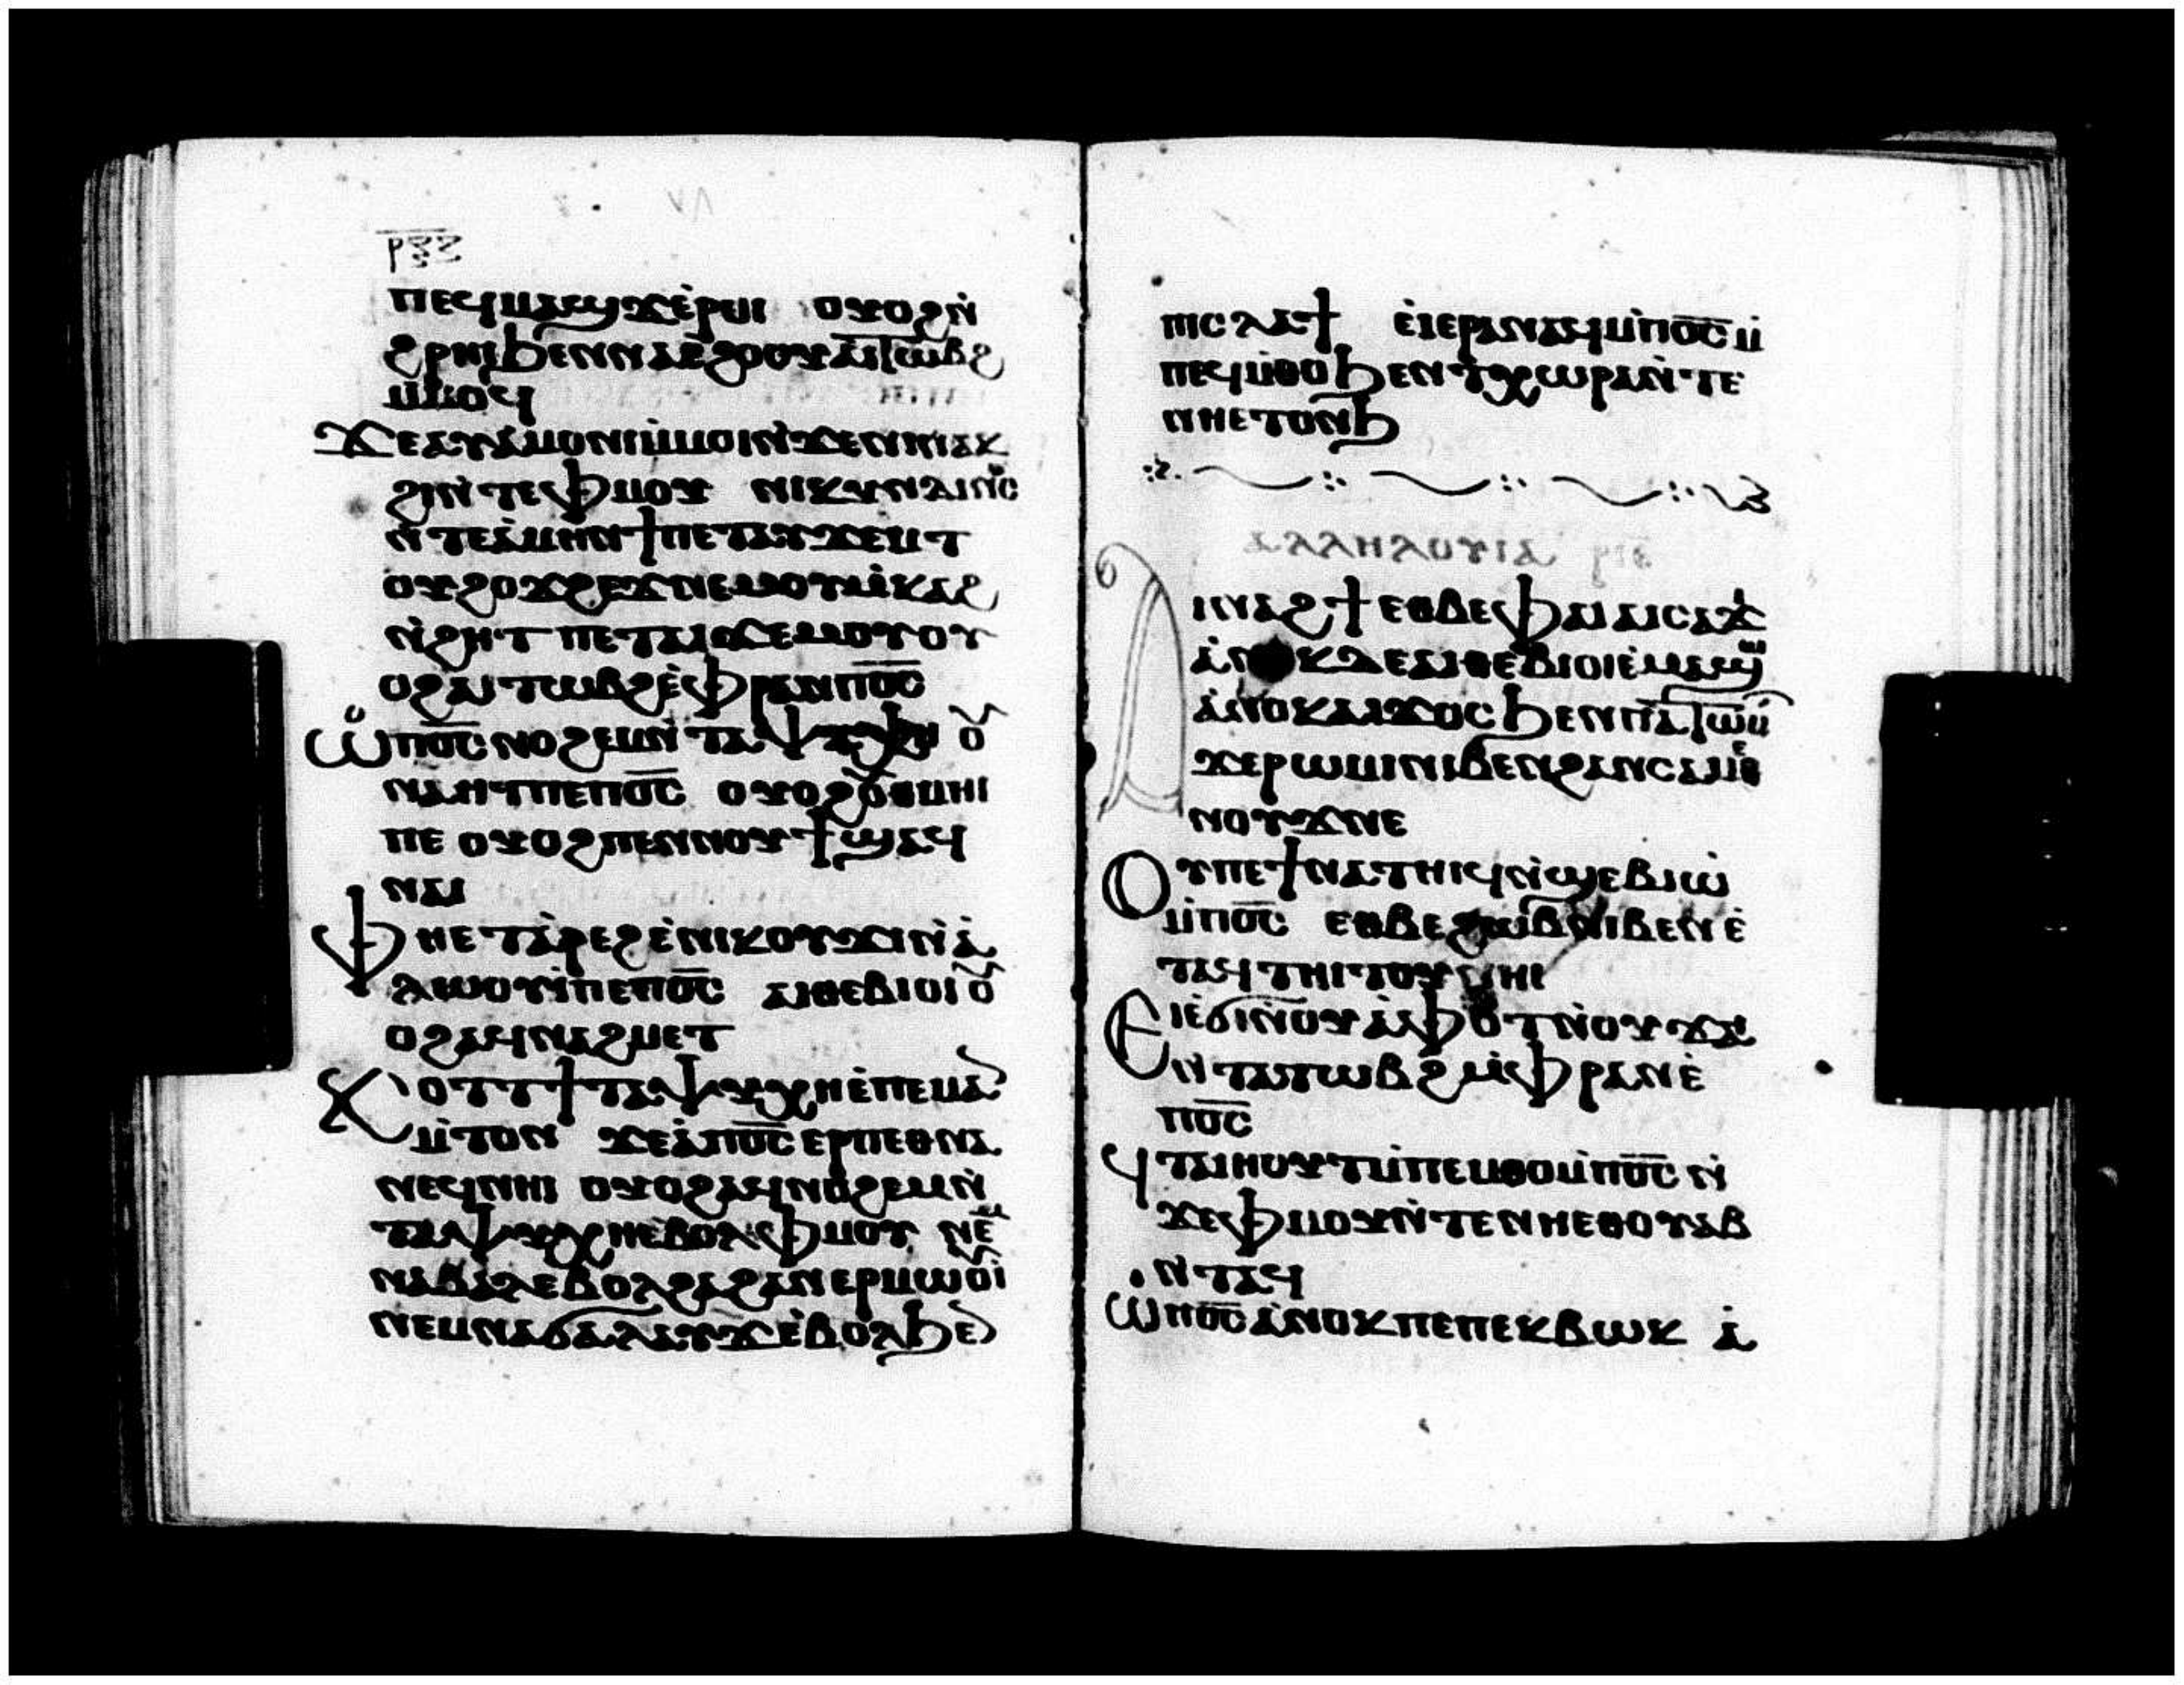 ⲣⲝⲍ
ⲡⲉϥⲙⲁϣϫ ⲉ̀ⲣⲟⲓ ⲟⲩⲟϩ ⲛ̀
ϩⲣⲏⲓ ϧⲉⲛ ⲛⲁⲉ̀ϩⲟⲟⲩ ⲁⲓⲧⲱⲃϩ
ⲙ̀ⲙⲟϥ
ϫⲉ ⲁⲩⲁ̀ⲙⲟⲛⲓ ⲙ̀ⲙⲟⲓ ⲛ̀ϫⲉ ⲛⲓⲛⲁⲕ
ϩⲓ ⲛ̀ⲧⲉ ⲫⲙⲟⲩ ⲛⲓⲕⲩⲛⲇⲓⲛⲟⲥ
ⲛ̀ⲧⲉ ⲁ̀ⲙⲉⲛϯ ⲡⲉⲧⲁⲩϫⲉⲙⲧ
ⲟⲩϩⲟϫϩⲉϫ ⲛⲉⲙ ⲟⲩⲙ̀ⲕⲁϩ
ⲛ̀ϩⲏⲧ ⲡⲉⲧⲁⲓϫⲉⲙⲟⲩ ⲟⲩ
ⲟϩ ⲁⲓⲧⲱⲃϩ ⲉ̀ⲫⲣⲁⲛ ⲡ̅ⲟ̅ⲥ̅
ⲱ̀ ⲡ̅ⲟ̅ⲥ̅ ⲛⲟϩⲉⲙ ⲛ̀ⲧⲁⲯⲩⲭⲏ ⲟⲩ
ⲛⲁⲏⲧ ⲡⲉ ⲡ̅ⲟ̅ⲥ̅ ⲟⲩⲟϩ ⲟ̀ⲑⲙⲏⲓ
ⲡⲉ ⲟⲩⲟϩ ⲡⲉⲛⲛⲟⲩϯ ϣⲁϥ
ⲛⲁⲓ
ⲫⲏⲉⲧⲁ̀ⲣⲉϩ ⲉ̀ⲛⲓⲕⲟⲩϫⲓ ⲛ̀ⲁ̀
ⲗⲱⲟⲩⲓ̀ ⲡⲉ ⲡ̅ⲟ̅ⲥ̅ ⲁⲓⲑⲉⲃⲓⲟⲓ ⲟⲩ
ⲟϩ ⲁϥⲛⲁϩⲙⲉⲧ
ⲕⲟⲧⲧ ϯⲧⲁⲯⲩⲭⲏ ⲉ̀ⲡⲉⲙⲁ
ⲙ̀ⲧⲟⲛ ϫⲉ ⲁ̀ ⲡ̅ⲟ̅ⲥ̅ ⲉⲣⲡⲉⲑⲛⲁ
ⲛⲉϥ ⲛⲏⲓ ⲟⲩⲟϩ ⲁϥⲛⲟϩⲉⲙ ⲛ̀
ⲧⲁⲯⲩⲭⲏ ⲉⲃⲟⲗ ⲫⲙⲟⲩ ⲛⲉⲙ
ⲛⲁⲃⲁⲗ ⲉⲃⲟⲗ ϩⲁ ϩⲁⲛⲉⲣⲙⲱⲟⲩⲓ
ⲛⲉⲙ ⲛⲁϭⲁⲗⲁⲩϫ ⲉ̀ⲃⲟⲗ ϧⲉⲛ
ⲡⲓⲥⲗⲁϯ ⲉⲓⲉⲣⲁⲛⲁϥ ⲙ̀ⲡ̅ⲟ̅ⲥ̅ ⲙ̀
ⲡⲉϥⲙ̀ⲑⲟ ϧⲉⲛ ϯⲭⲱⲣⲁ ⲛ̀ⲧⲉ
ⲛⲏⲉⲧⲟⲛϧ
ⲁⲗⲗⲏⲗⲟⲩⲓⲁ ⲣⲓⲉ
ⲁⲓⲛⲁϩϯ ⲉⲑⲃⲉ ⲫⲁⲓ ⲁⲓⲥⲁϫⲓ
ⲁ̀ⲛⲟⲕ ⲇⲉ ⲁⲓⲑⲉⲃⲓⲟⲓ ⲉ̀ⲙⲁϣⲱ
ⲁ̀ⲛⲟⲕ ⲁⲓϫⲟⲥ ϧⲉⲛ ⲡⲁⲧⲱⲙⲧ
ϫⲉ ⲣⲱⲙⲓ ⲛⲓⲃⲉⲛ ϩⲁⲛⲥⲁⲙⲉⲑ
ⲛⲟⲩϫ ⲛⲉ
ⲟⲩ ⲡⲉϯⲛⲁⲧⲏⲓϥ ⲛ̀ϣⲉⲃⲓⲱ̀
ⲙ̀ⲡ̅ⲟ̅ⲥ̅ ⲉⲑⲃⲉ ϩⲱⲃ ⲛⲓⲃⲉⲛ ⲉ̀
ⲧⲁϥⲧⲏⲓⲧⲟⲩ ⲛⲏⲓ
ⲉⲓⲉ̀ϭⲓ ⲛ̀ⲟⲩⲁ̀ⲫⲟⲧ ⲛ̀ⲟⲩϫⲁⲓ
ⲛⲧⲁⲧⲱⲃϩ ⲙ̀ⲫⲣⲁⲛ ⲉ̀
ⲡ̅ⲟ̅ⲥ̅
ϥⲧⲁⲓⲏⲟⲩⲧ ⲙ̀ⲡⲉⲙⲑⲟ ⲙ̀ⲡ̅ⲟ̅ⲥ̅ ⲛ̀
ϫⲉ ⲫⲙⲟⲩ ⲛ̀ⲧⲉ ⲛⲏⲉⲑⲟⲩⲁⲃ
ⲛ̀ⲧⲁϥ
ⲱ̀ ⲡ̅ⲟ̅ⲥ̅ ⲁ̀ⲛⲟⲕ ⲡⲉ ⲡⲉⲕⲃⲱⲕ ⲁ̀